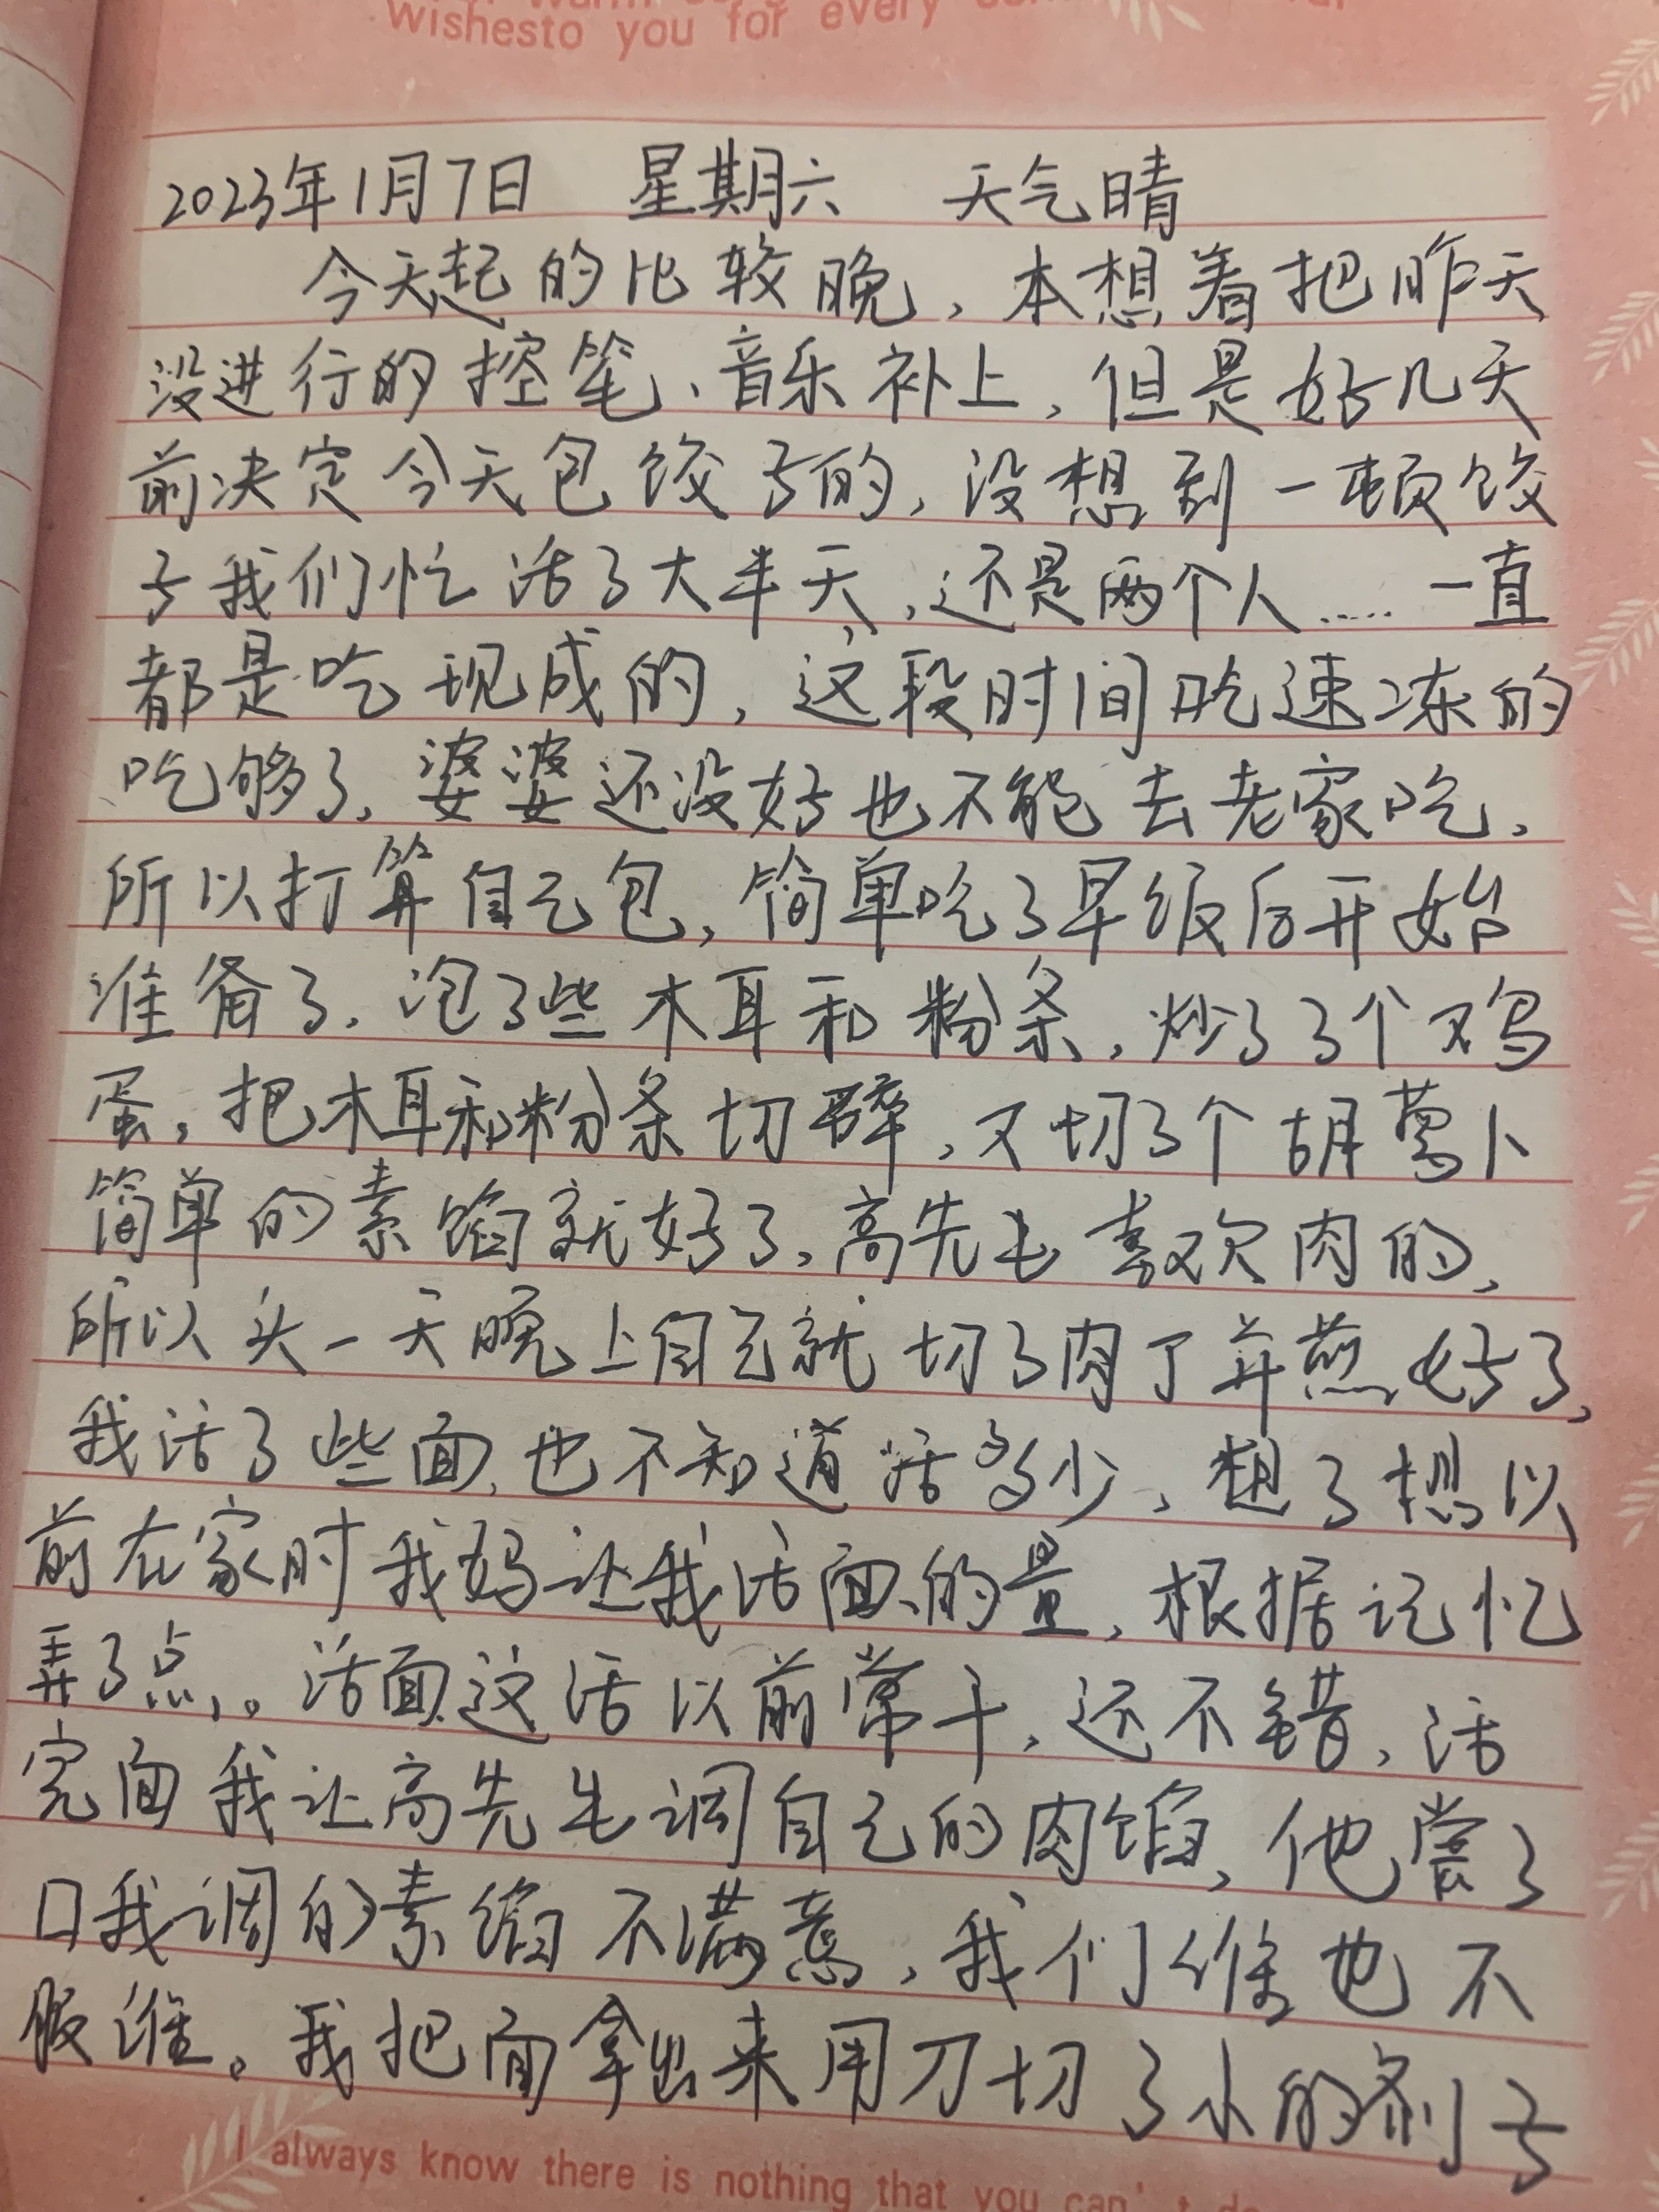 Wishesto you for every
2023年1月7日 星期六 天气晴
今天起的比较晚,本想着把昨天
没进行的控笔、音乐补上,但是好几天
前决定今天包饺子的,没想到一顿饺
子我们忙活了大半天,还是两个人……一直
都是吃现成的,这段时间吃速冻的
吃够了,婆婆还没好也不能去老家吃,
所以打算自己包,简单吃了早饭后开始
准备了,泡了些木耳和粉条,炒了3个鸡
蛋,把木耳和粉条切碎,又切了个胡萝卜
简单的素馅就好了,高先生喜欢肉的,
所以头一天晚上自己就切了肉丁并煎好了,
我活了些面,也不知道活多少,想了想以
前在家时我妈让我活面的量,根据记忆
弄了点,。活面这活以前常干,还不错,活
完面我让高先生调自己的肉馅,他尝了
口我调的素馅不满意,我们谁也不
服谁。我把面拿出来用刀切了小的剂子
I always know there is nothing that you can't do